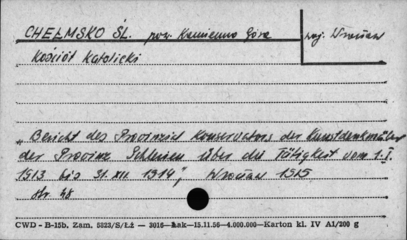 CHEŁMSKO ŚL. pow. Kamienna Góra woj. Wrocław
Kościół Katolicki
"Bericht des Provinzial Konservators der Kunstdenkmäler
der Provinz Schlesien über die Tätigkeit vom 1.I.
1913 bis 31.XII. 1914", Wrocław 1915
str. 48
CWD - B-15b. Zam. 5823/S/Łż — 3016 — Łak—15.11.56—4.000.000—Karton kl. IV A1/200 g